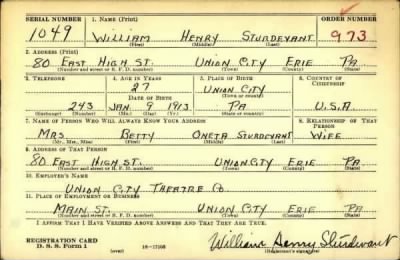 SERIAL NUMBER 1. NAME (Print) ORDER NUMBER
1049 WILLIAM HENRY STURDEVANT 973
(First) (Middle) (Last)
2. ADDRESS (Print)
80 EAST HIGH ST. UNION CITY ERIE PA
(Number and street or R. F. D. number) (Town) (County) (State)
3. TELEPHONE 4. AGE IN YEARS 5. PLACE OF BIRTH 6. COUNTRY OF CITIZENSHIP
27 UNION CITY
DATE OF BIRTH (Town or county)
243 JAN 9 1913 PA U.S.A.
(Exchange) (Number) (Mo.) (Day) (Yr.) (State or country)
7. NAME OF PERSON WHO WILL ALWAYS KNOW YOUR ADDRESS 8. RELATIONSHIP OF THAT PERSON
MRS BETTY ONETA STURDEVANT WIFE
(Mr., Mrs., Miss) (First) (Middle) (Last)
9. ADDRESS OF THAT PERSON
80 EAST HIGH ST. UNION CITY ERIE PA
(Number and street or R. F. D. number) (Town) (County) (State)
10. EMPLOYER'S NAME
UNION CITY THEATRE CO.
11. PLACE OF EMPLOYMENT OR BUSINESS
MAIN ST. UNION CITY ERIE PA
(Number and street or R. F. D. number) (Town) (County) (State)
I AFFIRM THAT I HAVE VERIFIED ABOVE ANSWERS AND THAT THEY ARE TRUE.
REGISTRATION CARD William Henry Sturdevant
D. S. S. Form 1 (over) 16-17105 (Registrant's signature)